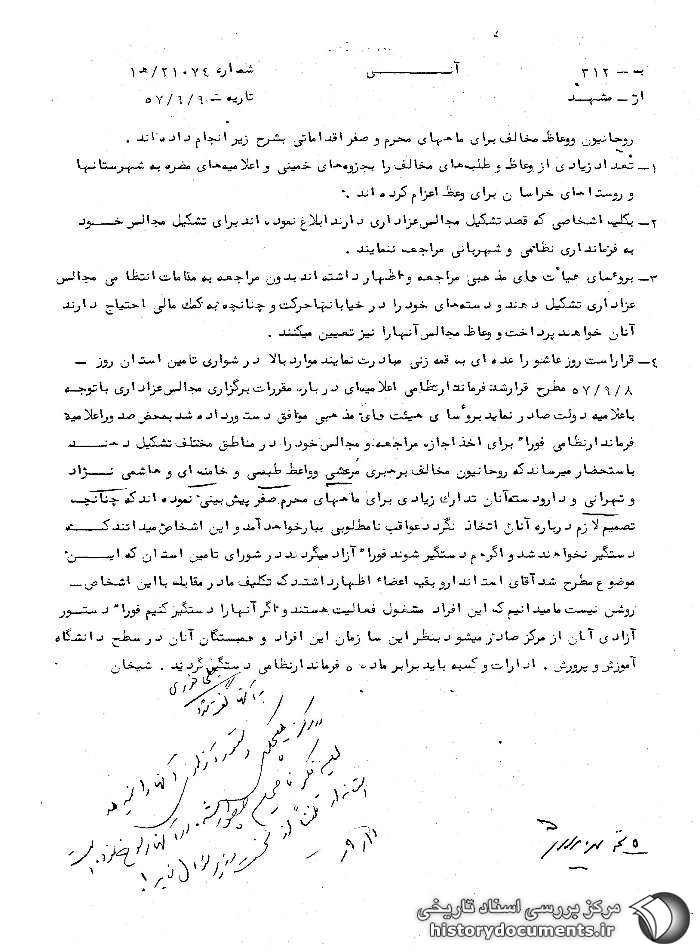 به – ۳۱۲ آنـــــی شماره ۲۱۰۷۴/ ه‍ ۱
از – مشهد تاریخ ۵۷/۹/۹
روحانیون ووعاظ مخالف برای ماههای محرم و صفر اقداماتی بشرح زیر انجام داده اند .
۱– تعداد زیادی از وعاظ و طلبه‌های مخالف را بجزوه‌های خمینی و اعلامیه‌های مضره به شهرستانها
و روستاهای خراسان برای وعظ اعزام کرده اند .
۲– بکلیه اشخاصی که قصد تشکیل مجالس عزاداری دارند ابلاغ نموده اند برای تشکیل مجالس خـــود
به فرمانداری نظامی و شهربانی مراجعه ننمایند .
۳– بروءسای هیئات های مذهبی مراجعه و اظهار داشته اند بدون مراجعه به مقامات انتظامی مجالس
عزاداری تشکیل دهند و دسته‌های خود را در خیابانها حرکت و چنانچه به کمک مالی احتیاج دارند
آنان خواهند پرداخت و وعاظ مجالس آنها را نیز تعیین میکنند .
۴– قرار است روز عاشورا عده ای به قمه زنی مبادرت نمایند موارد بالا در شورای تامین استان روز –
۵۷/۹/۸ مطرح قرار شد فرماندار نظامی اعلامیه‌ای در باره مقررات برگزاری مجالس عزاداری با توجه
باعلامیه دولت صادر نماید بروءسای هیئت های مذهبی موافق دستور داده شد بمحض صدور اعلامیه
فرماندار نظامی فوراً برای اخذ اجازه مراجعه و مجالس خود را در مناطق مختلف تشکیل دهنـــد
باستحضار میرساند که روحانیون مخالف برهبری مرعشی وواعظ طبسی و خامنه ای و هاشمی نـــژاد
و تهرانی و دارودسته آنان تدارک زیادی برای ماههای محرم صفر پیش بینی نموده اند که چنانچه
تصمیم لازم درباره آنان اتخاذ نگردد عواقب نامطلوبی ببار خواهد آمد و این اشخاص میدانند کـــه
دستگیر نخواهند شد و اگر هم دستگیر شوند فوراً آزاد میگردند در شورای تامین استان که ایـــن
موضوع مطرح شد آقای استاندار و بقیه اعضاء اظهار داشتند که تکلیف ما در مقابله با این اشخاص –
روشن نیست ما میدانیم که این افراد مشغول فعالیت هستند و اگر آنها را دستگیر کنیم فوراً دستور
آزادی آنان از مرکز صادر میشود بنظر این سازمان این افراد و همبستگان آنان در سطح دانشگاه
آموزش و پرورش . ادارات و کسبه باید برابر ماده ۵ فرماندار نظامی دستگیر گردند . شیخان
به آنها گفته شود
در مرکز هیچکس دستور آزادی آنها را نمیدهد
مرکز بررسی اسناد تاریخی
historydocuments.ir